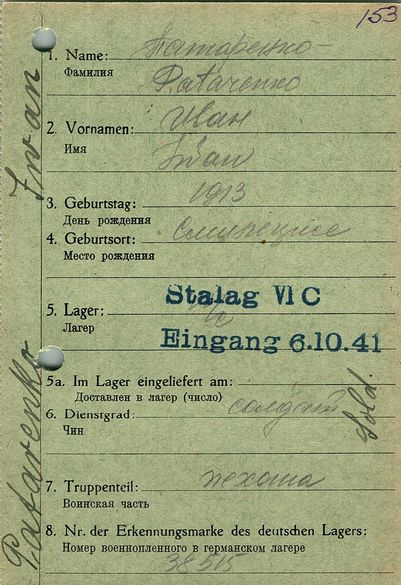 153
1. Name: Патаренко
Фамилия
Patarenko
2. Vornamen: Иван
Имя
Iwan
3. Geburtstag: 1913
День рождения
4. Geburtsort:
Место рождения
Stalag VI C
5. Lager:
Лагер
Eingang 6.10.41
5a. Im Lager eingeliefert am:
Доставлен в лагер (число)
6. Dienstgrad: солдат Sold.
Чин
7. Truppenteil: пехота
Воинская часть
8. Nr. der Erkennungsmarke des deutschen Lagers:
Номер военнопленного в германском лагере
38515
Patarenko Iwan